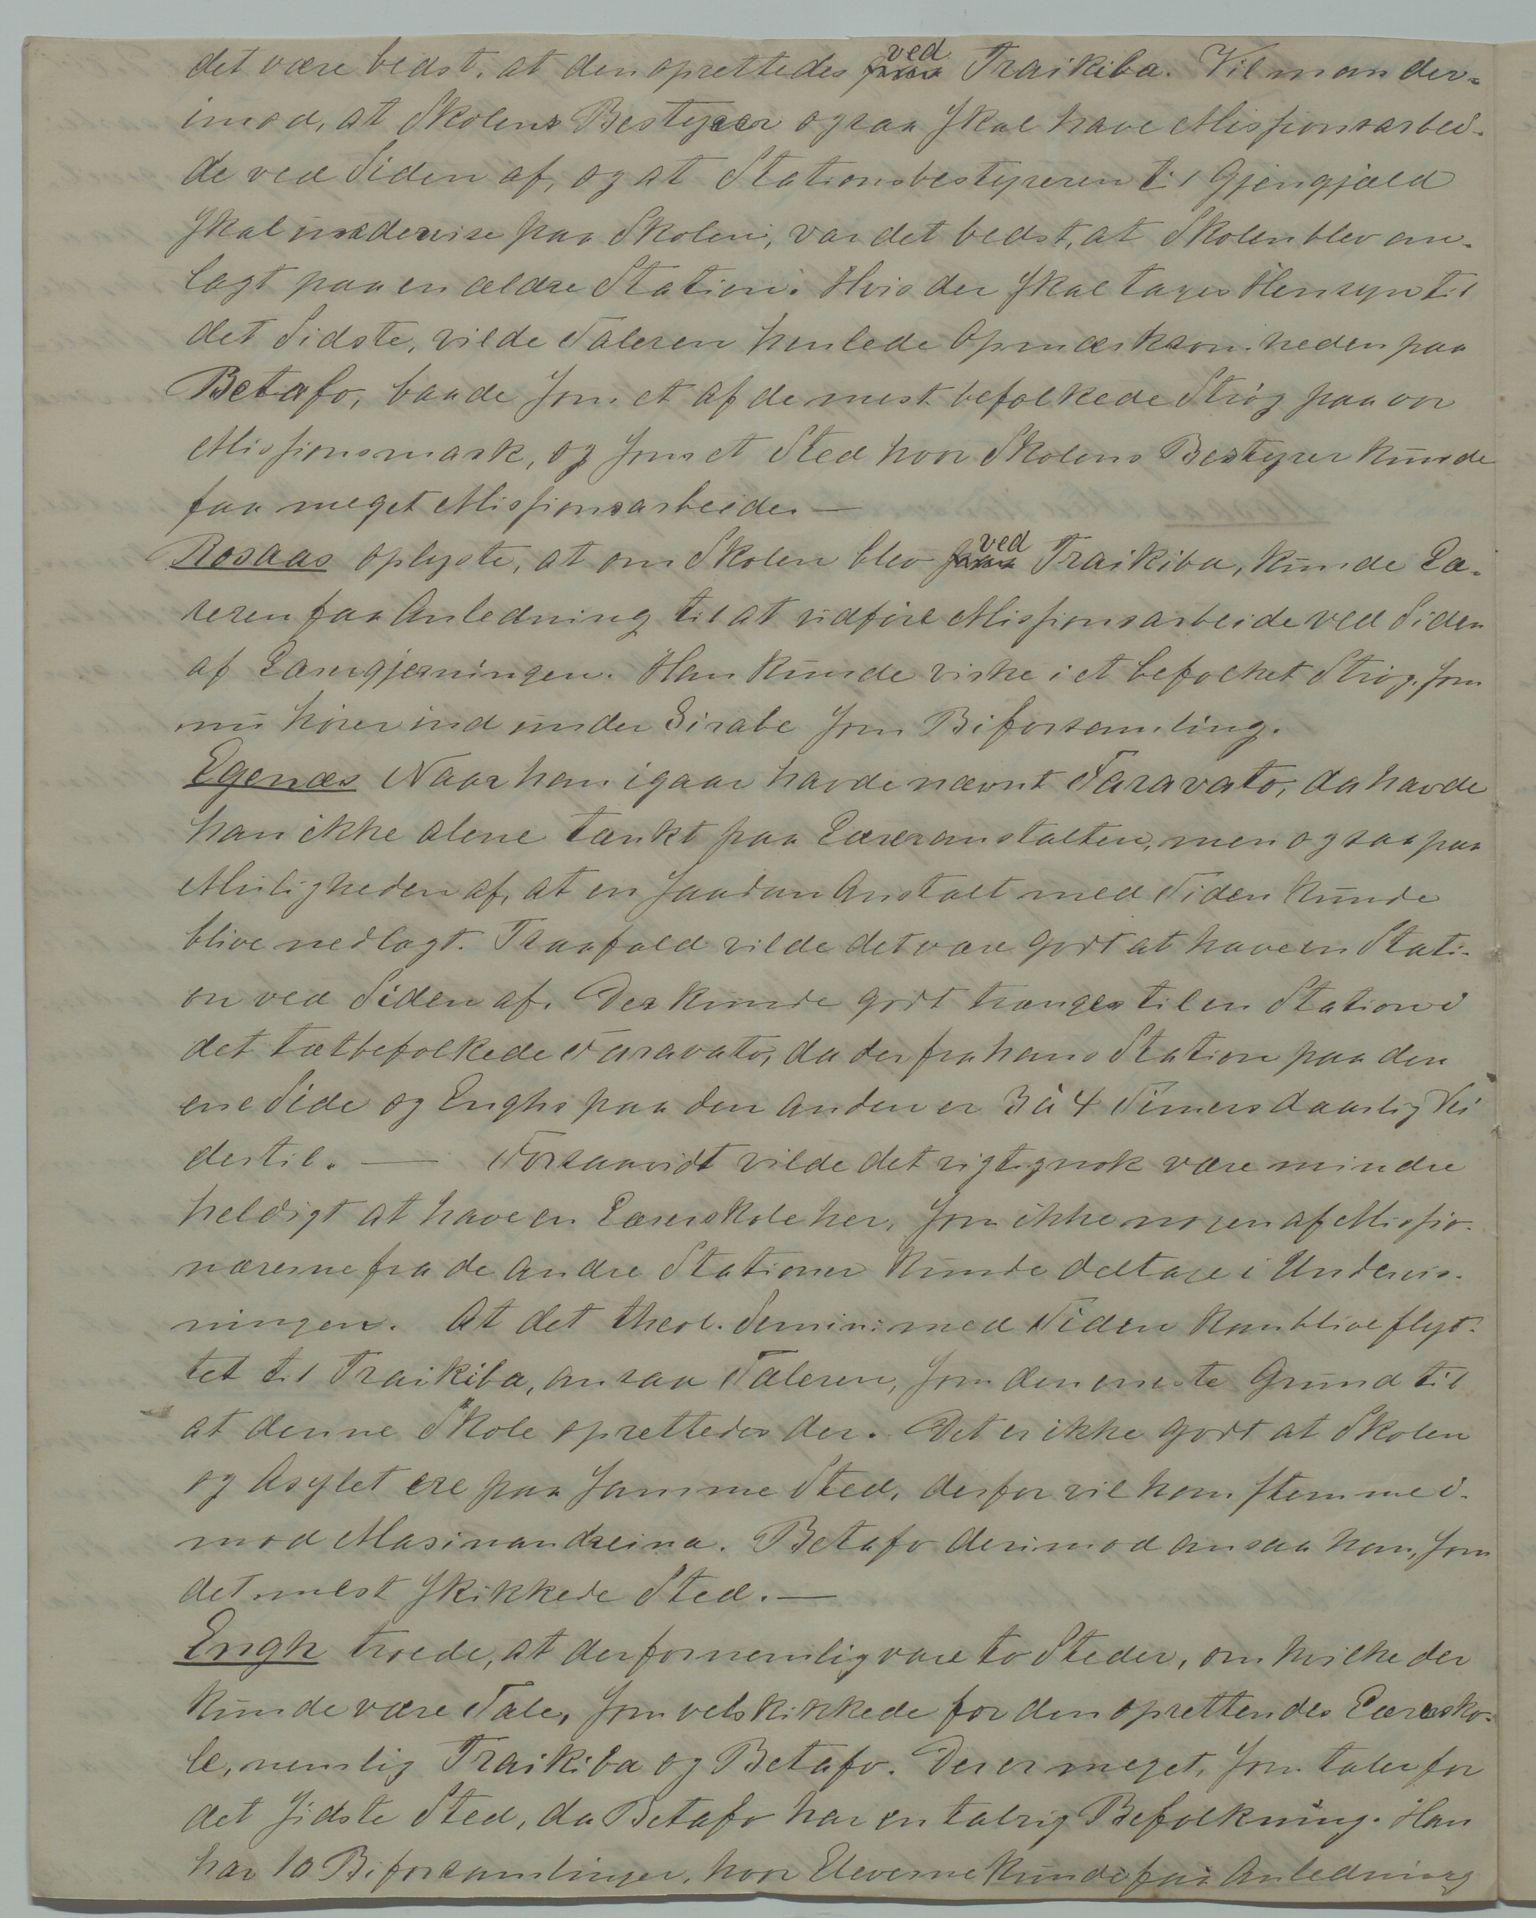 det være bedst, at den oprettedes ved Traikiba. Vil man der-
imod, at Skolens Bestyrer ogsaa skal have Missionsarbei-
de ved Siden af, og at Stationsbestyreren til Gjengjæld
skal undervise paa Skolen, var det bedst, at Skolen blev an-
lagt paa en ældre Station. Hvis der skal tages Hensyn til
det Sidste, vilde Taleren henlede Opmærksomheden paa
Betafo, baade som et af de mest befolkede Strøg paa vor
Missionsmark, og som et Sted hvor Skolens Bestyrer kunde
faa meget Missionsarbeide. —
Rosaas oplyste, at om Skolen blev ved Traikiba, kunde Læ-
reren faa Anledning til at udføre Missionsarbeide ved Siden
af Lærergjerningen. Han kunde virke i et befolket Strøg, som
nu hører ind under Sirabe som Biforsamling.
Egenæs Naar han igaar havde nævnt Faravato, da havde
han ikke alene tænkt paa Læreranstalten, men ogsaa paa
Muligheden af, at en saadan Anstalt med Tiden kunde
blive nedlagt. I saafald vilde det være godt at have en Stati-
on ved Siden af. Der kunde godt trænges til en Station i
det tætbefolkede Faravato, da der fra hans Station paa den
ene Side og Enghs paa den anden er 3 à 4 Timers daarlig Vei
dertil. — Forsaavidt vilde det rigtignok være mindre
heldigt at have en Lærerskole her, som ikke nogen af Missio-
nærerne fra de andre Stationer kunde deltage i Undervis-
ningen. At det theol. Semin: med Tiden kan blive flyt-
tet til Traikiba, ansaa Taleren, som den eneste Grund til
at denne Skole oprettedes der. Det er ikke godt at Skolen
og Asylet ere paa samme Sted, derfor vil han stemme i-
mod Masinandreina. Betafo derimod ansaa han, som
det mest skikkede Sted. —
Engh troede, at der fornemlig vare to Steder, om hvilke der
kunde være Tale, som velskikkede for den oprettendes Lærersko-
le, nemlig Traikiba og Betafo. Der er meget, som taler for
det sidste Sted, da Betafo har en talrig Befolkning. Han
har 10 Biforsamlinger, hvor Eleverne kunde faa Anledning